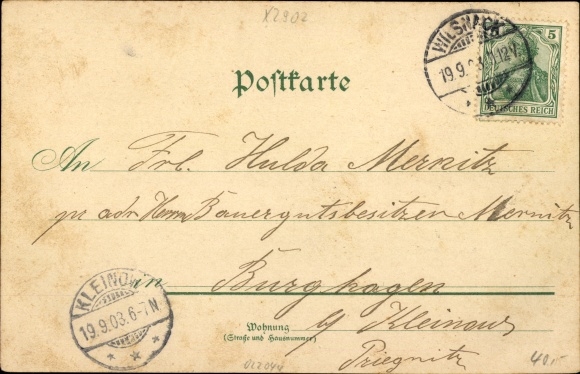 X2902
WILSNACK
19.9.03.
5
DEUTSCHES REICH
Postkarte
An Frl. Hulda Mernitz
pr adr. Herrn Bauergutsbesitzer Mernitz
in Burghagen
KLEINOW
19.9.03. 6-7N.
Wohnung
(Straße und Hausnummer)
b/ Kleinow
Priegnitz
40,-